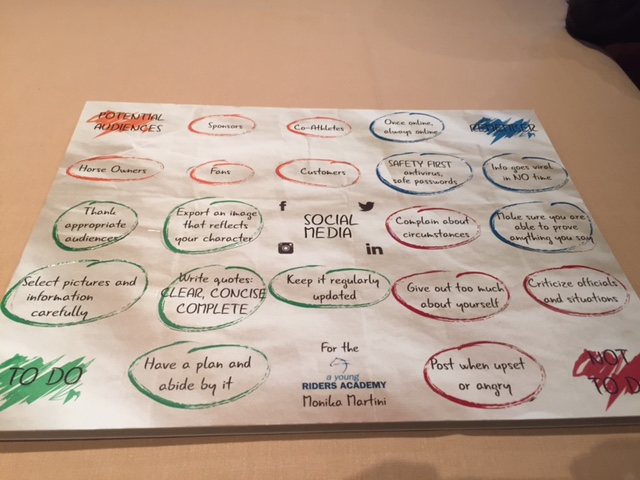 POTENTIAL
AUDIENCES
Sponsors
Co-Athletes
Once online,
always online
REMEMBER
Horse Owners
Fans
Customers
SAFETY FIRST
antivirus,
safe passwords
Info goes viral
in NO time
Thank
appropriate
audiences
Export an image
that reflects
your character
f
SOCIAL
MEDIA
in
Complain about
circumstances
Make sure you are
able to prove
anything you say
Select pictures and
information
carefully
Write quotes:
CLEAR, CONCISE
COMPLETE
Keep it regularly
updated
Give out too much
about yourself
Criticize officials
and situations
TO DO
Have a plan and
abide by it
For the
a young
RIDERS ACADEMY
Monika Martini
Post when upset
or angry
NOT
TO D